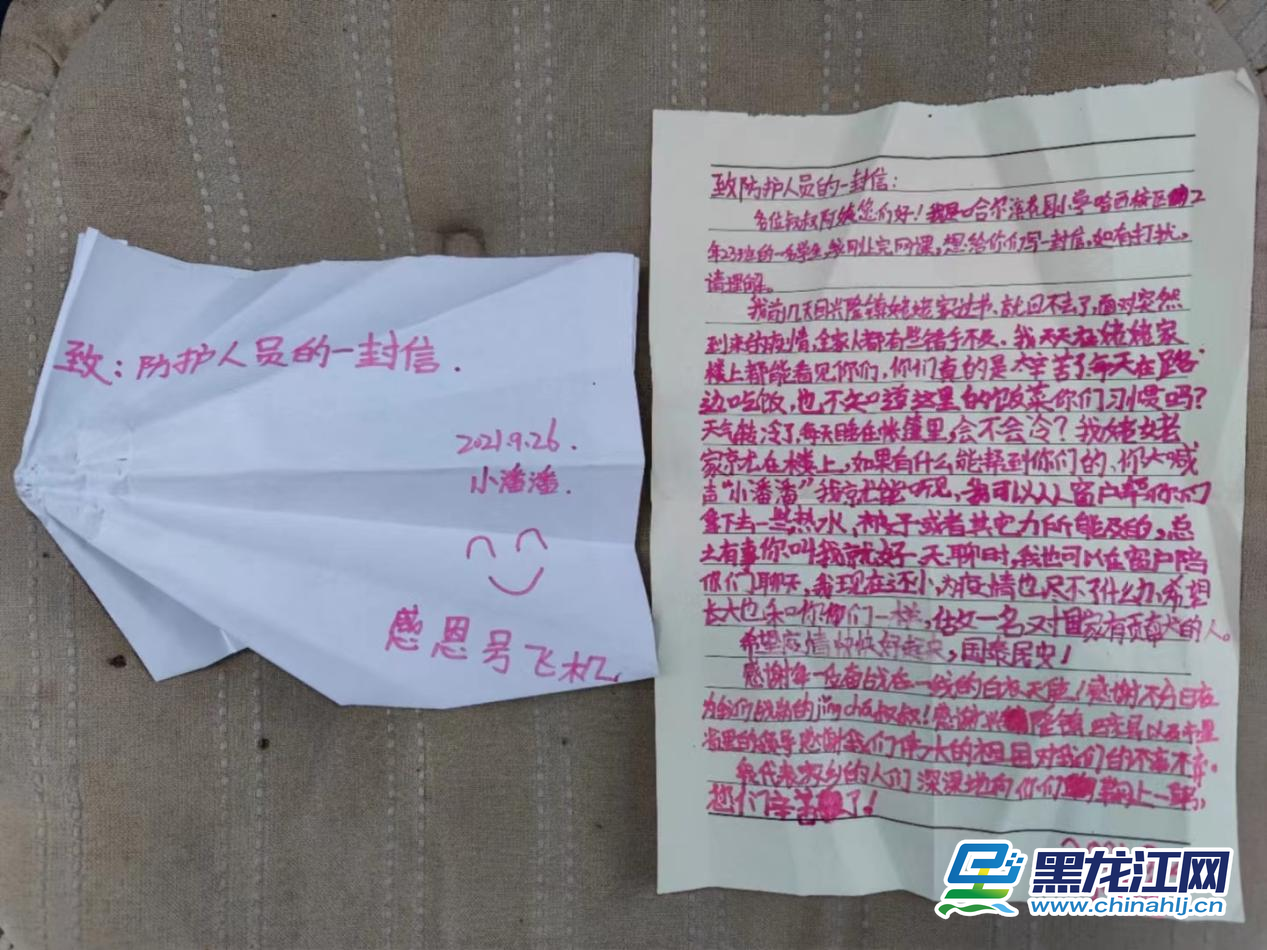 致：防护人员的一封信.
2021.9.26.
小潘潘.
感恩号飞机
致防护人员的一封信：
各位叔叔阿姨您们好！我是哈尔滨花园小学哈西校区2
年23班的一名学生,我刚上完网课，想给你们写一封信，如有打扰，
请理解。
我前几天回兴隆镇姥姥家过节、就回不去了，面对突然
到来的疫情，全家人都有些错手不及、我天天在姥姥家
楼上都能看见你们，你们真的是太辛苦了每天在路
边吃饭，也不知道这里的饭菜你们习惯吗？
天气转冷了，每天睡在帐篷里，会不会冷？我姥姥
家就在楼上，如果有什么能帮到你们的、你大喊
声“小潘潘”我就能听见，我可以从窗户帮你们
拿下去一些热水、被子或者其它力所能及的，总
之有事你叫我就好一天聊时，我也可以在窗户陪
你们聊天，我现在还小，为疫情也尽不了什么力、希望
长大也和你们一样，做女一名对国家有贡献的人。
希望疫情快快好起来，国泰民安！
感谢每一位奋战在一线的白衣天使！感谢不分日夜
为我们站岗的jing cha叔叔！感谢兴隆镇 巴彦县以及市里
省里的领导感谢我们伟大的祖国对我们的不离不弃.
我代表家乡的人们 深深地向你们 鞠上一躬，
您们辛苦了！
黑龙江网
www.chinahlj.cn